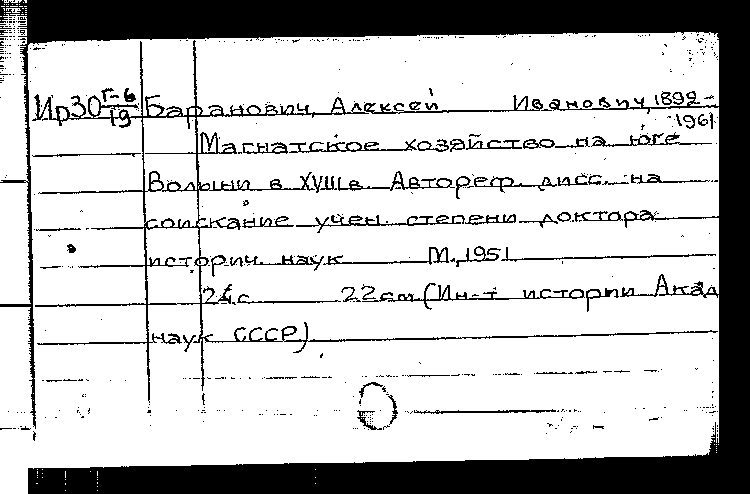 Ир30 Г-6/19 Баранович, Алексей Иванович, 1892-
1961
Магнатское хозяйство на юге
Волыни в XVIII в. Автореф. дисс. на
соискание учен. степени доктора
историч. наук М., 1951
24с 22см (Ин-т истории Акад
наук СССР)